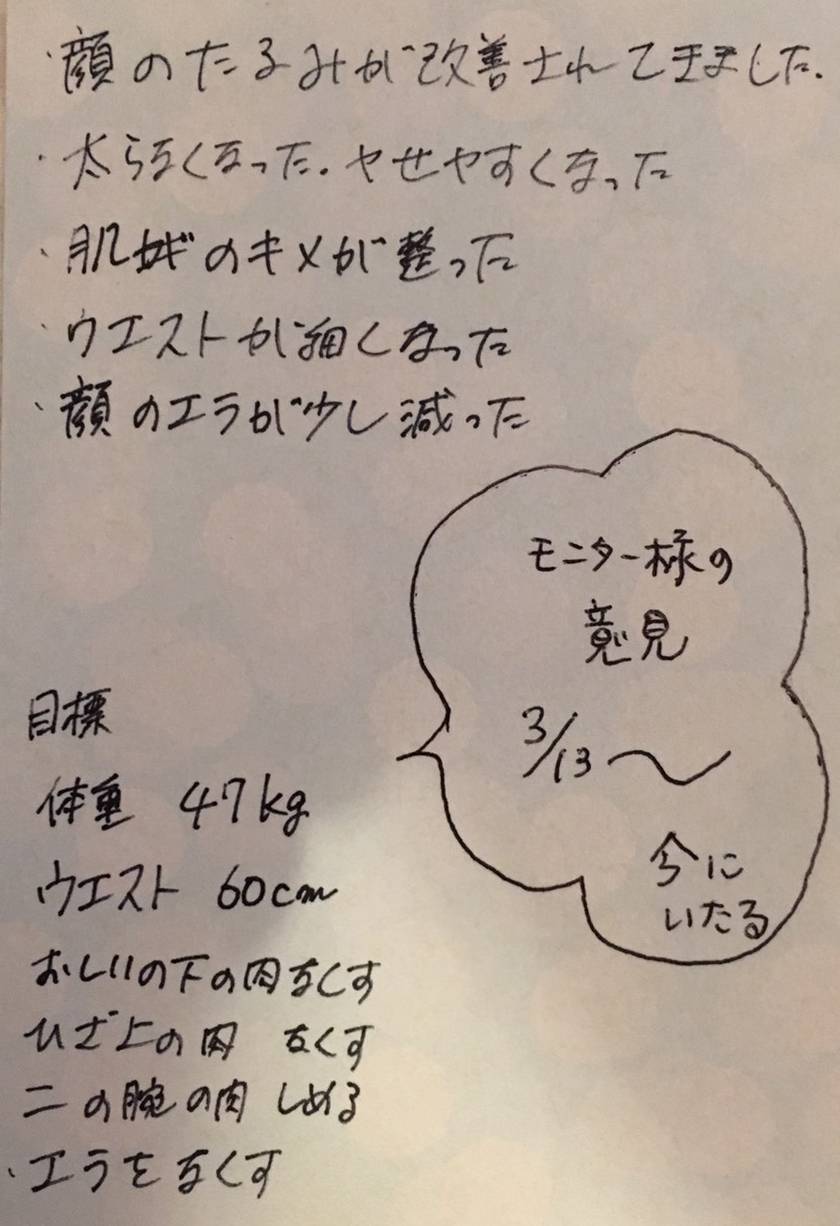 ・顔のたるみが改善されてきました.
・太らなくなった.ヤせやすくなった
・肌のキメが整った
・ウエストが細くなった
・顔のエラが少し減った
モニター様の
意見
3/13〜
今に
いたる
目標
体重 47kg
ウエスト 60cm
おしりの下の肉なくす
ひざ上の肉 なくす
二の腕の肉 しめる
・エラをなくす